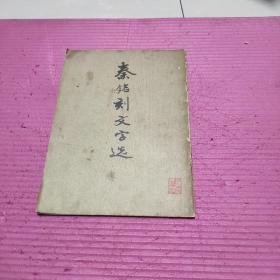 秦铭刻文字选